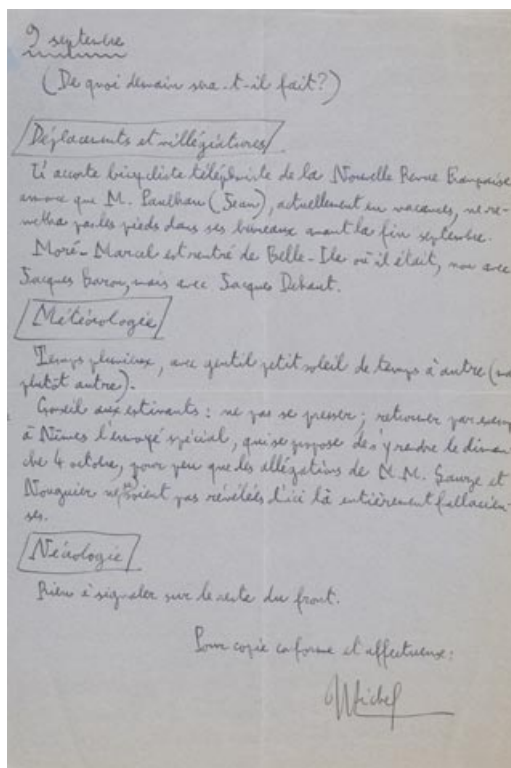 9 septembre
(De quoi demain sera-t-il fait?)
Déplacements et villégiatures
L'accorte bicycliste téléphoniste de la Nouvelle Revue Française
annonce que M. Paulhan (Jean), actuellement en vacances, ne re-
mettra pas les pieds dans ses bureaux avant la fin septembre.
Moré-Marcel est rentré de Belle-Ile où il était, non avec
Jacques Baron, mais avec Jacques
Météorologie
Temps pluvieux, avec gentil petit soleil de temps à autre (
plutôt autre).
Conseil aux estivants : ne pas se presser ; retrouver par exem
à Nîmes l'envoyé spécial, qui se propose de s'y rendre le diman
che 4 octobre, pour peu que les allégations de M.M. et
Nouguier ne soient pas révélées d'ici là entièrement fallacieu-
ses.
Nécrologie
Rien à signaler sur le reste du front.
Pour copie conforme et affectueuse :
Michel